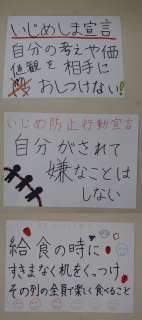 いじめしま宣言
自分の考えや価
値観を相手に
おしつけない!
いじめ防止行動宣言
自分がされて
嫌なことは
しない
給食の時に
すきまなく机をくっつけ
その列の全員で楽しく食べること